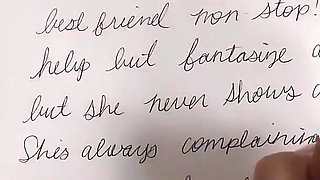 best friend non stop!
help but fantasize a
but she never shows a
Shes always complainin